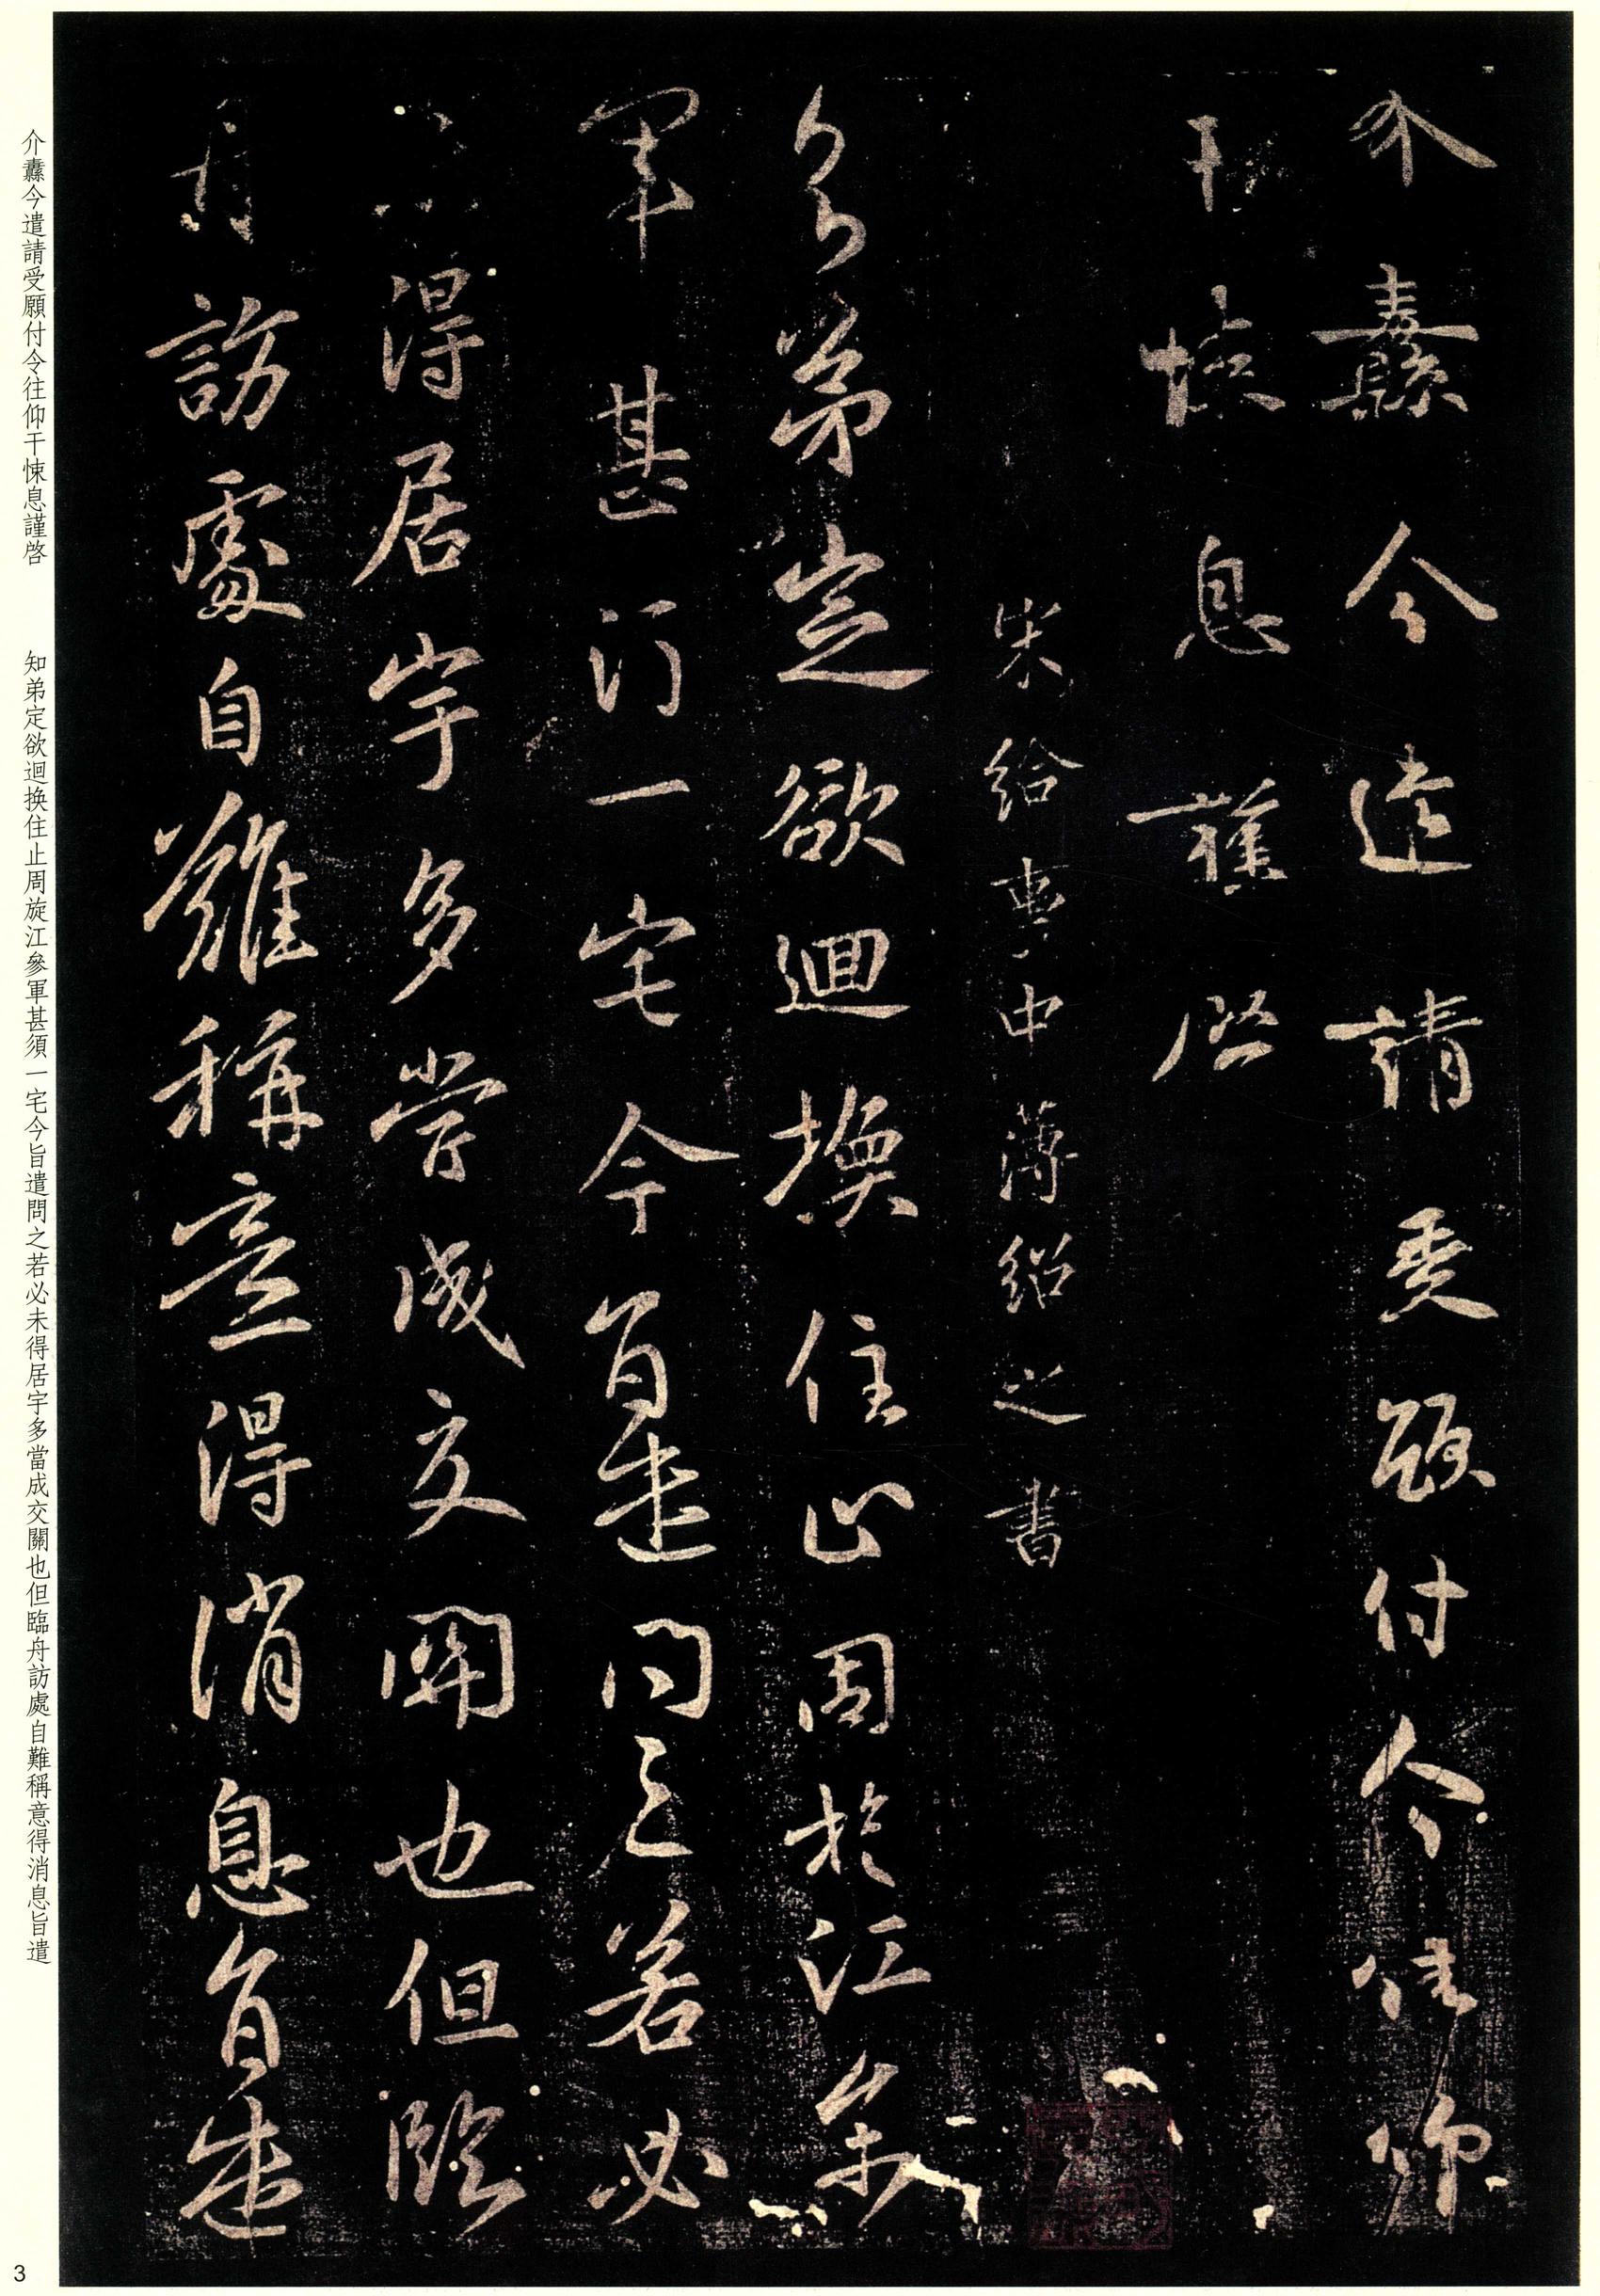 介纛今遣請受願付令往仰
干悚息謹啓
宋給事中薄紹之書
知弟定欲迴換住止周旋江參
軍甚須一宅今旨遣問之若必
未得居宇多當成交關也但臨
舟訪處自難稱意得消息旨遣
介纛今遣請受願付令往仰干悚息謹啓
知弟定欲迴换住止周旋江參軍甚須一宅今旨遣問之若必未得居宇多當成交關也但臨舟訪處自難稱意得消息旨遣
3